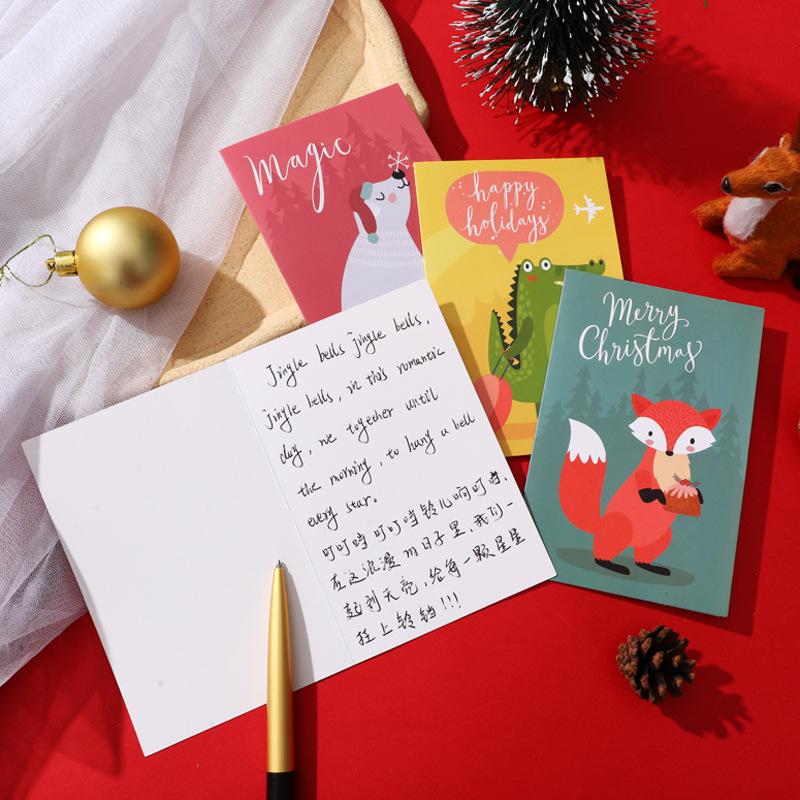 Magic
happy
holidays
Merry
Christmas
Jingle bells jingle bells,
jingle bells, in this romantic
day, we together until
the morning, to hang a bell
every star.
叮叮当 叮叮当 铃儿响叮当,
在这浪漫的日子里,我们一
起到天亮,给每一颗星星
挂上铃铛!!!